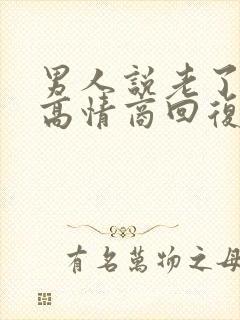 男人說老了
高情商回復
有名萬物之母